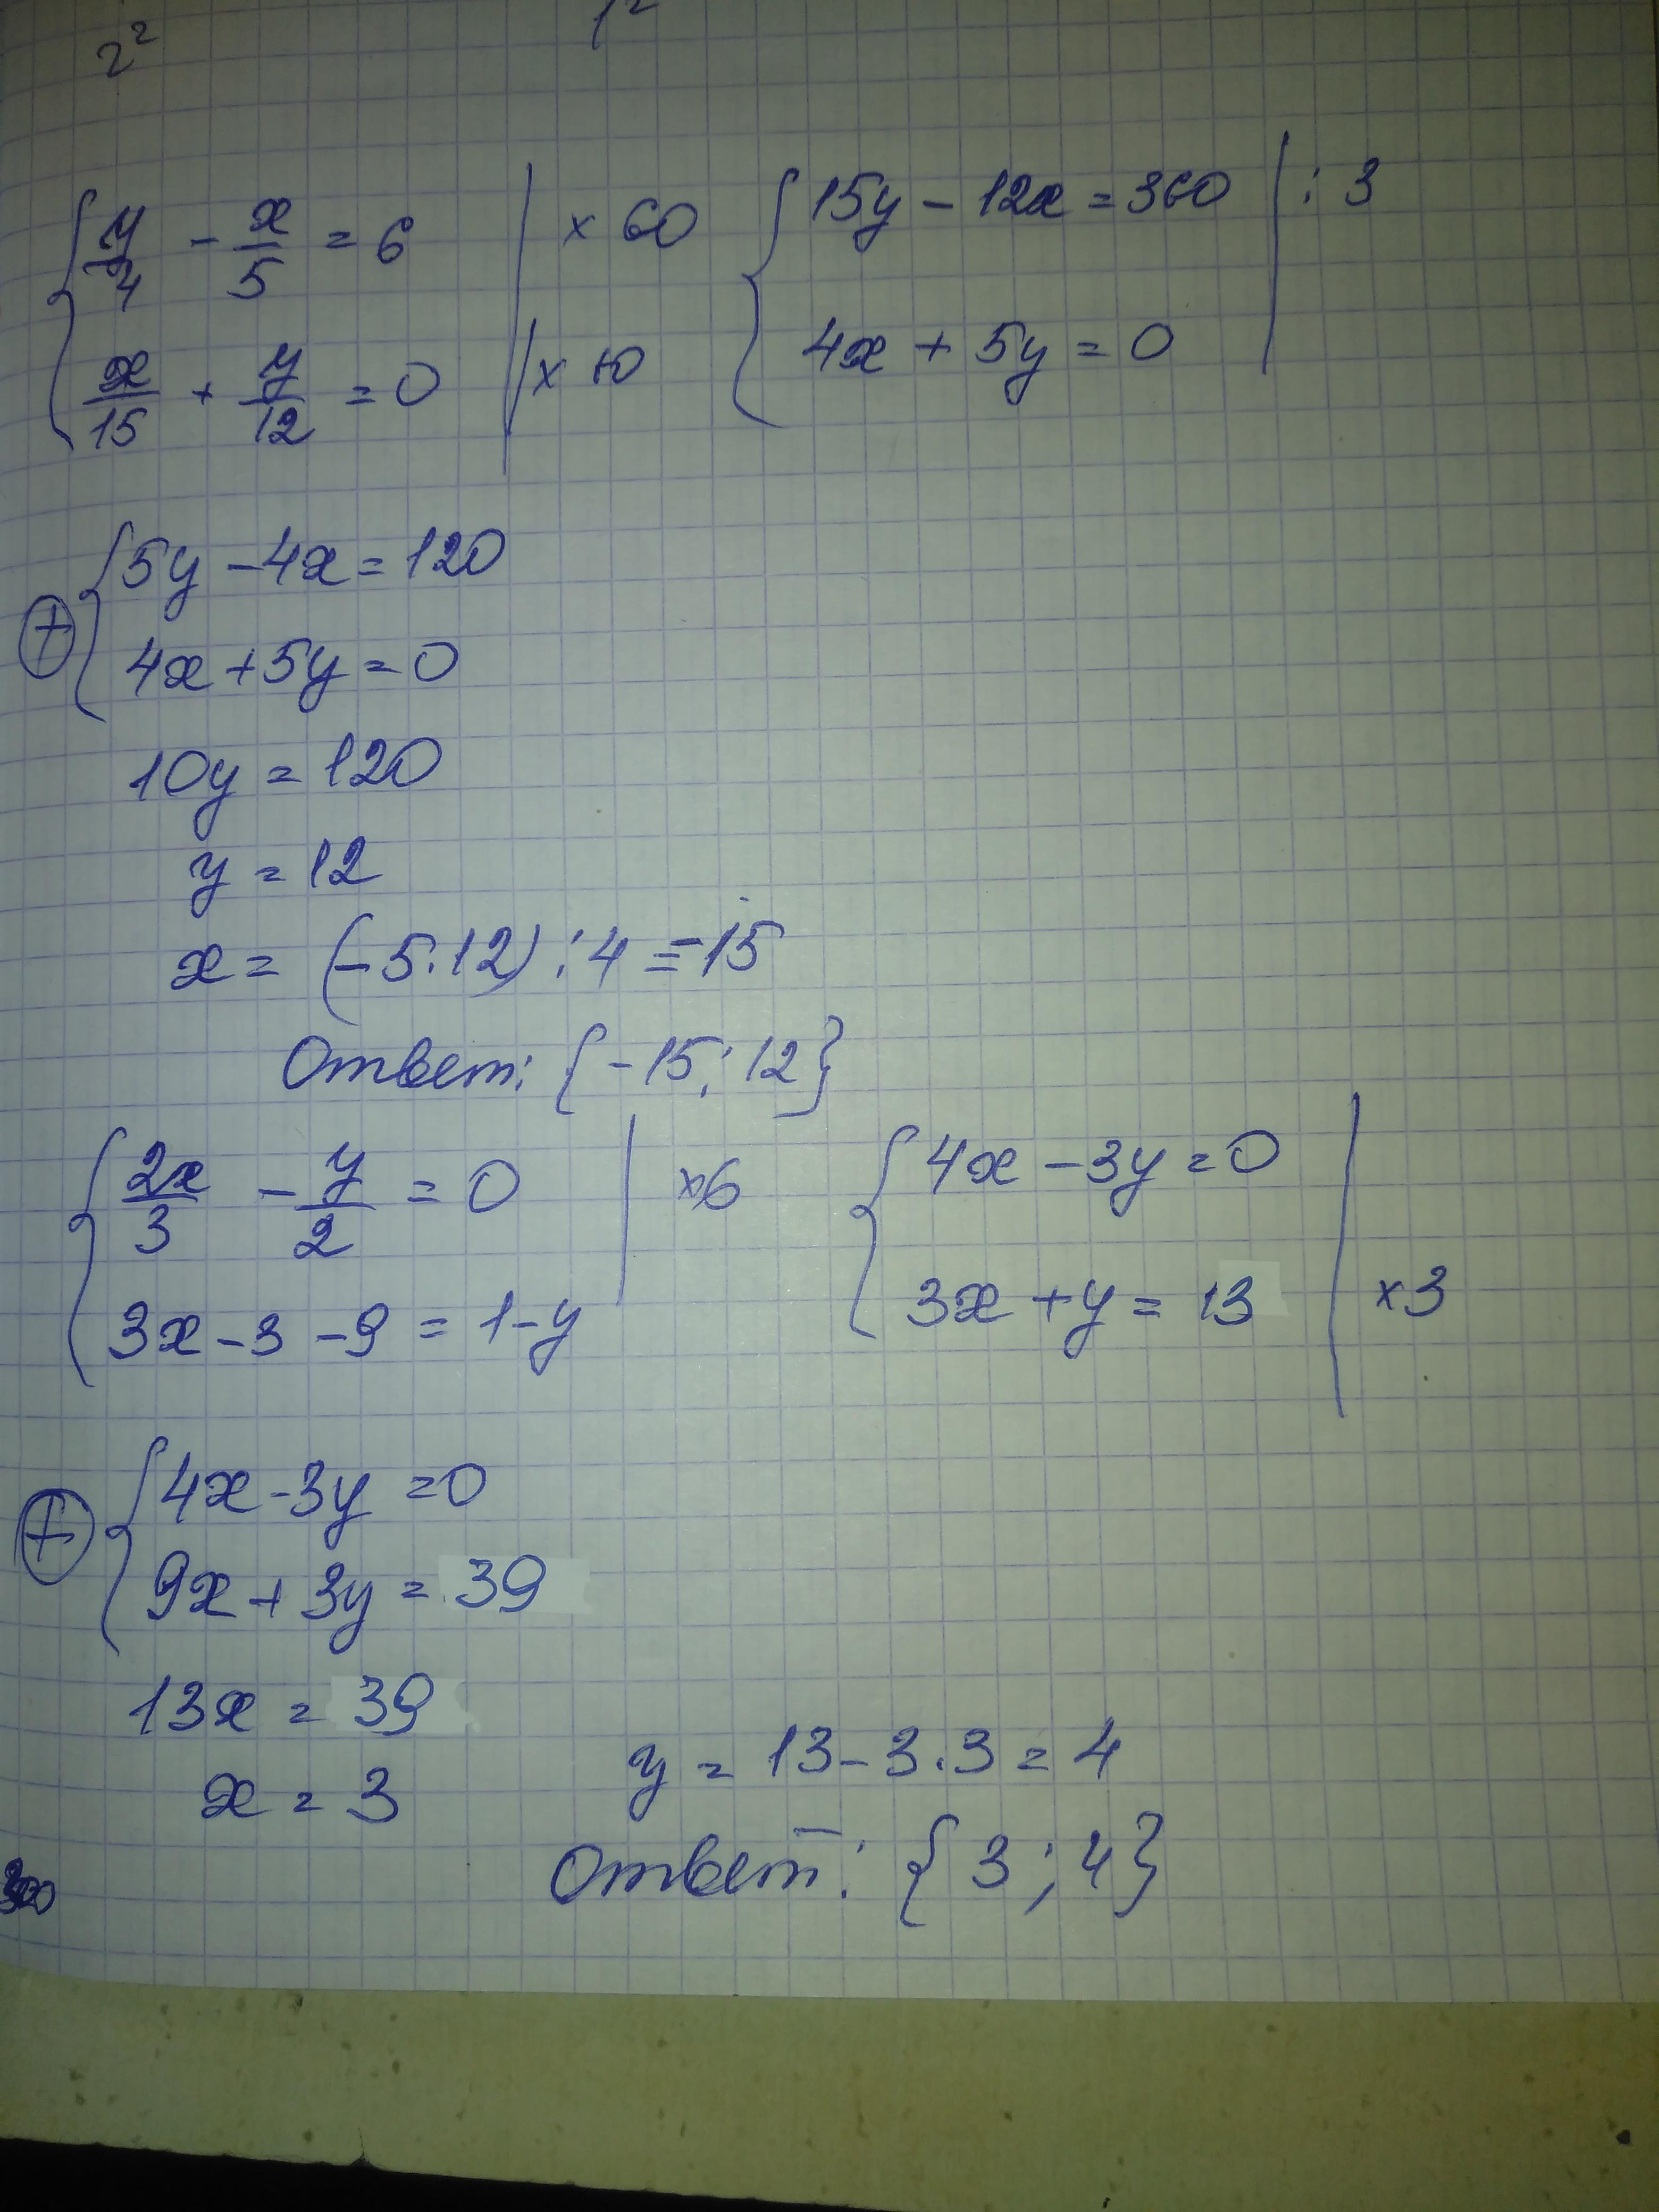 2²
1²
{ y/4 - x/5 = 6 | × 60 { 15y - 12x = 360 | : 3
x/15 + y/12 = 0 | × 10 4x + 5y = 0
⊕ { 5y - 4x = 120
4x + 5y = 0
10y = 120
y = 12
x = (-5·12) : 4 = -15
Ответ: {-15; 12}
{ 2x/3 - y/2 = 0 | ×6 { 4x - 3y = 0
3x - 3 - 9 = 1 - y 3x + y = 13 | ×3
⊕ { 4x - 3y = 0
9x + 3y = 39
13x = 39
x = 3 y = 13 - 3·3 = 4
Ответ: {3; 4}